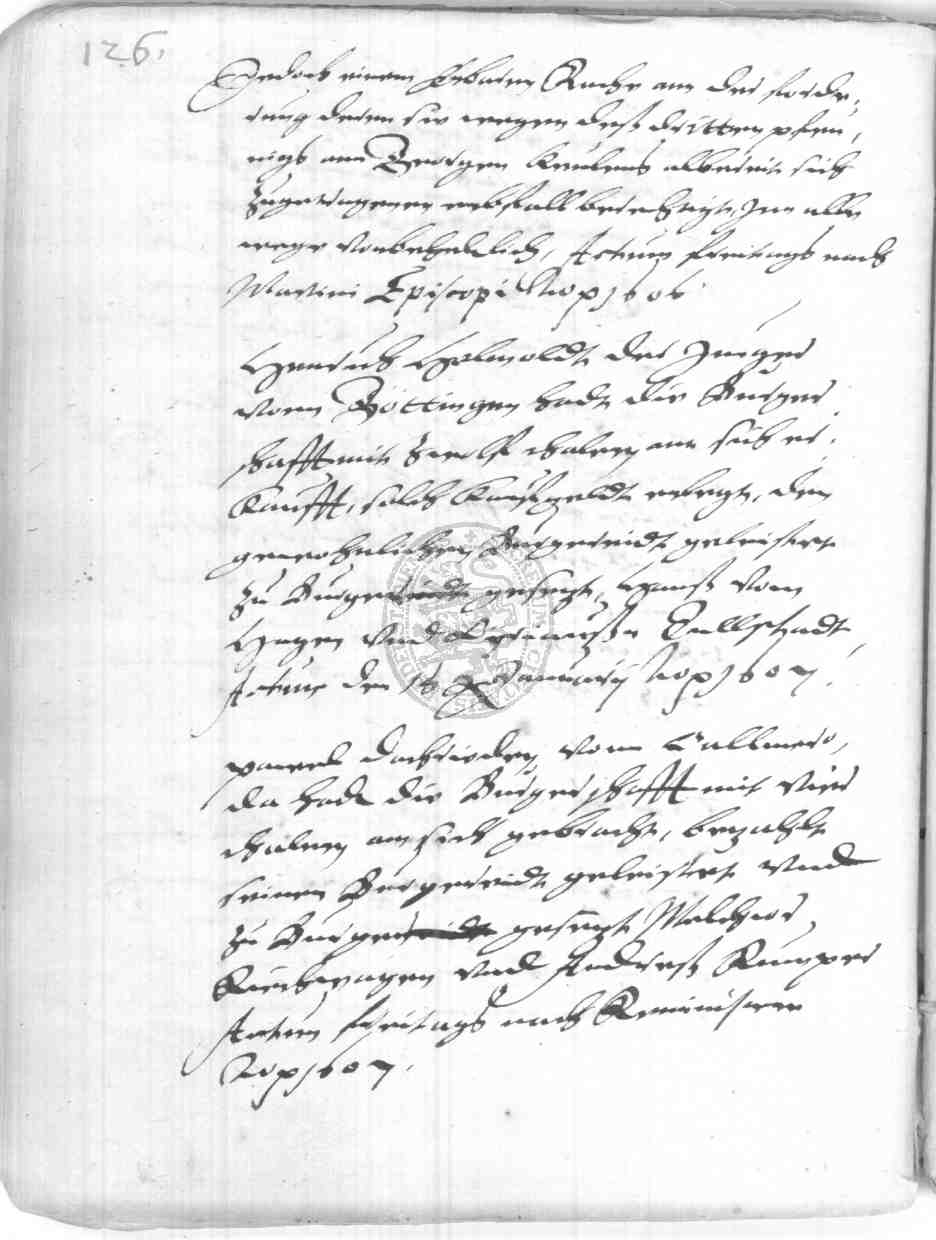 126.
Jedoch einem Erbaren Rathe an der forde,
rung deren sie wegen deß dritten pfen,
nigs an Georgen Keulens allereit sich
zugetragenen erbfall berechtigt, In alle
wege vorbeheltlich, Actum freitags nach
Martini Episcopi Anno p 1606
Henrich Helmoldt der Junger
vonn Göttingen hadt die Burger
schafft mit zwolf thalern an sich er,
kaufft, solch kaufgeldt erlegt, den
gewohnlichen Burgereidt geleistet
zu Burgen gesetzt, Hanß vom
Hagen vnd Tullstadt
Actum den 16 Januarij Anno p 1607
vonn
da hadt die Burgerschafft mit vier
thalern an sich gebracht, bezahlt
seinen Burgereidt geleistet vnd
zu Burgen gesetzt Melchior
vnd Andreß Kumper
Actum freitags nach Reminiscere
Anno p 1607.